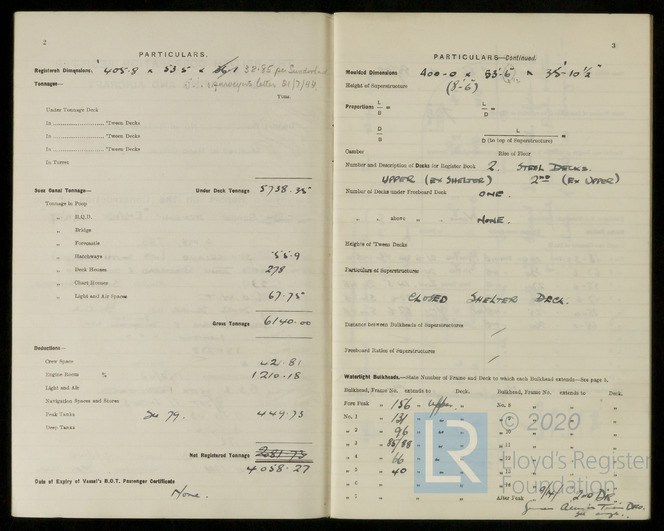 2
PARTICULARS.
Registered Dimensions, 405·8 x 53·5 x 26·1 32·85 per Sunderland
Tonnages— surveyors letter 21/7/44
TONS.
Under Tonnage Deck
In ..................... 'Tween Decks
In ..................... 'Tween Decks
In ..................... 'Tween Decks
In Turret
Suez Canal Tonnage— Under Deck Tonnage 5738.35
Tonnage in Poop
„ R.Q.D.
„ Bridge
„ Forecastle
„ Hatchways 55·9
„ Deck Houses 278
„ Chart Houses
„ Light and Air Spaces 67·75
Gross Tonnage 6140·00
Deductions—
Crew Space 421·81
Engine Room % 1210·18
Light and Air
Navigation Spaces and Stores
Peak Tanks 79. 449·73
Deep Tanks
Net Registered Tonnage
4058·27
Date of Expiry of Vessel's B.O.T. Passenger Certificate
None.
3
PARTICULARS—Continued.
Moulded Dimensions 400-0 x 53'-6" x 35'-10½"
Height of Superstructure (8'-6")
Proportions L/B = L/D =
D/B L/D (to top of Superstructure) =
Camber Rise of Floor
Number and Description of Decks for Register Book 2. STEEL DECKS.
UPPER (EX SHELTER) 2ND (EX UPPER)
Number of Decks under Freeboard Deck ONE.
„ „ above „ „ NONE.
Heights of 'Tween Decks
Particulars of Superstructures
CLOSED SHELTER DECK.
Distance between Bulkheads of Superstructures /
Freeboard Ratios of Superstructures /
Watertight Bulkheads.—State Number of Frame and Deck to which each Bulkhead extends—See page 5.
Bulkhead, Frame No. extends to Deck. Bulkhead, Frame No. extends to Deck.
Fore Peak 156 „ Upper. No. 8
No. 1 „ 131 „ „ 9
„ 2 „ 96 „ „ 10
„ 3 „ 85/88 „ „ 11
„ 4 „ 66 „ „ 12
„ 5 „ 40 „ „ 13
„ 6 „ „ „ 14
„ 7 „ „ After Peak 9/41 2ND DK.
LR
© 2020
Lloyd's Register
Foundation